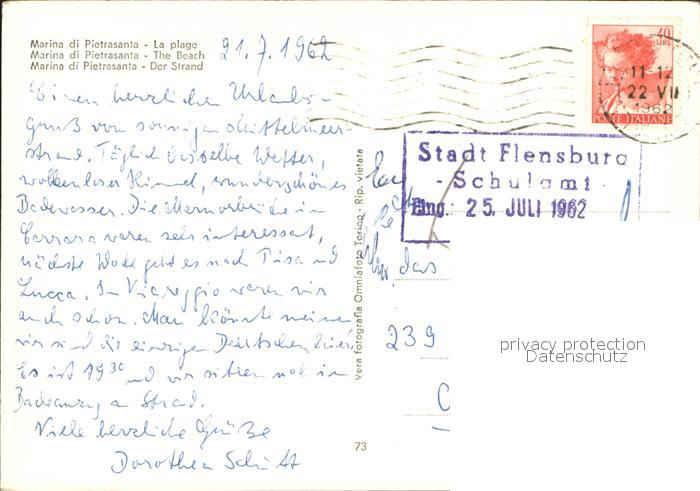 Marina di Pietrasanta - La plage
Marina di Pietrasanta - The Beach
Marina di Pietrasanta - Der Strand
21.7.1962
Einen herzlichen Urlaubs-
gruß vom sonnigen Mittelmeer-
strand. Täglich dasselbe Wetter,
wolkenloser Himmel, wunderschönes
Badewasser. Die Marmorbrüche in
Carrara waren sehr interessant,
nächste Woche geht es nach Pisa und
Lucca. In Viareggio waren wir
auch schon. Man könnte meinen
wir sind die einzigen Deutschen hier.
Es ist 19 30 und wir sitzen noch im
Badeanzug am Strand.
Viele herzliche Grüße
Dorothea Schütt
Vera fotografia Omniafoto Torino - Rip. vietata
73
40
LIRE
POSTE ITALIANE
11-12
22 VII
1962
Stadt Flensburg
- Schulamt -
Eing.: 25. JULI 1962
das
239
privacy protection
Datenschutz